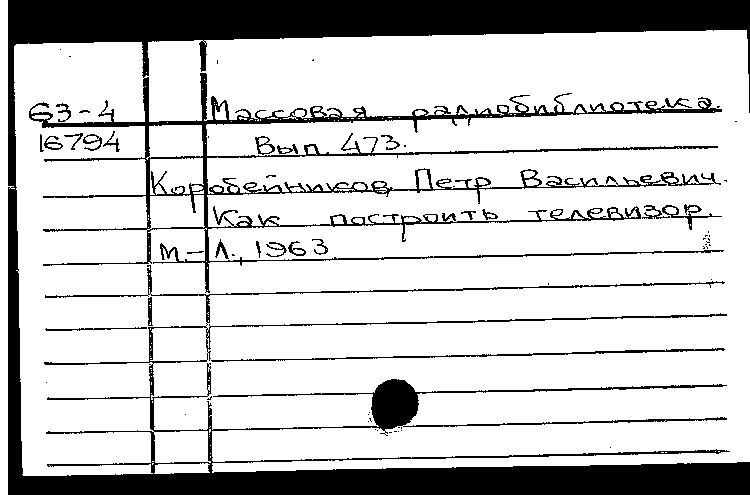 63-4 Массовая радиобиблиотека.
16794 Вып. 473.
Коробейников, Петр Васильевич.
Как построить телевизор.
М.-Л., 1963